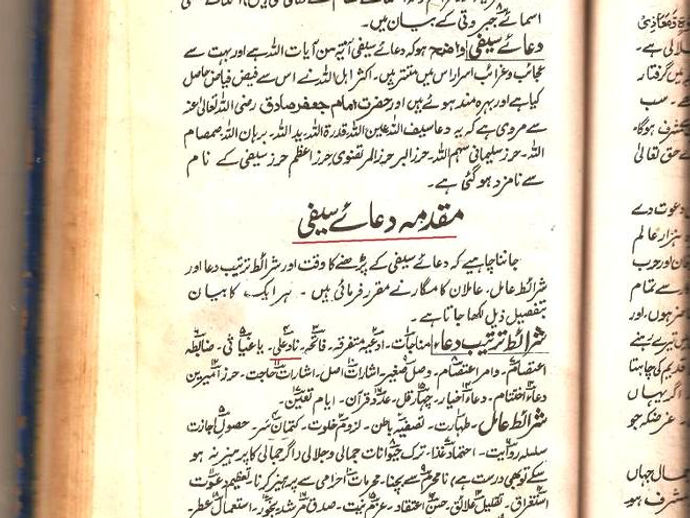 اسمائے جبروتی کے بیان میں۔
دعائے سیفی واضح ہو کہ دعائے سیفی آیۃ من آیات اللہ ہے اور بہت سے
عجائب و غرائب اسرار اس میں مستتر ہیں۔ اکثر اہل اللہ نے اس سے فیض فیاض حاصل
کیا ہے اور بہرہ مند ہوئے ہیں اور حضرت امام جعفر صادق رضی اللہ تعالیٰ عنہ
سے مروی ہے کہ یہ دعا سیف اللہ عین اللہ قدرۃ اللہ ید اللہ۔ برہان اللہ صمصام
اللہ۔ حرز سلیمانی سہم اللہ۔ حرز البر حرز المرتضوی حرز اعظم حرز سیفی کے نام
سے نامزد ہو گئی ہے۔
مقدمہ دعائے سیفی
جاننا چاہیے کہ دعائے سیفی کے پڑھنے کا وقت اور شرائط ترتیب دعا اور
شرائط عامل۔ عاملان کامگار نے مقرر فرمائی ہیں۔ ہر ایک کا بیان
بتفصیل ذیل لکھا جاتا ہے۔
شرائط ترتیب دعا مناجات۔ ادعیہ متفرقہ۔ فاتحہ۔ نادعلی۔ یا غیاثی۔ ضابطہ
اعتصام۔ و امر اعتصام۔ وصل صغیر۔ اشارات اصل۔ اشارات حاجت۔ حرز امیرین
دعاء اختتام۔ دعاء اخیار۔ چہار قل۔ عدد قرآن۔ ایام تعین۔
شرائط عامل۔ طہارت۔ تصفیہ باطن۔ لزوم خلوت۔ کتمان سر۔ حصول اجازت
سلسلہ روایت۔ احتماد غذا۔ ترک حیوانات جمالی و جلالی (اگر جمالی کا پرہیز نہ ہو
سکے تو بھی درست ہے) نامحرم سے بچنا۔ محرمات احرامی سے پرہیز کرنا۔ تعظیم دعوت
استغراق۔ تقلیل علائق۔ حسن اعتقاد۔ عزم نیت۔ صدق مرشد۔ بخور۔ استعمال عطر۔
لالی ہے۔
میں گرفتار
۔ سب
مشرف ہوگا۔
ے حق تعالیٰ
دعوت دے
ہزار عالم
اور حرب
سے تمام
ہوں۔ اور
تیرے بنے
قدیم کی چاہتا
اگر یہاں
۔ غرضکہ جو
جہاں
مشرف ہو۔